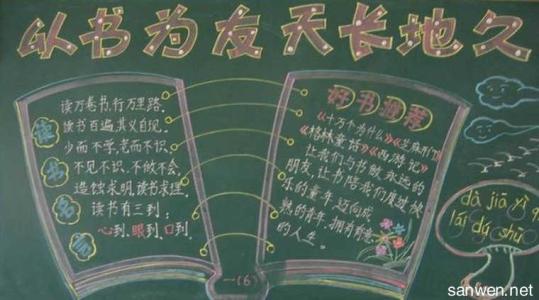 以书为友天长地久
读书名言
读万卷书,行万里路。
读书百遍,其义自见。
少而不学,老而不识。
不见不识,不做不会。
造烛求明,读书求理。
读书有三到:
心到、眼到、口到。
好书推荐
《十万个为什么》《芝麻开门》
《格林童话》《西游记》
让我们与书做永远的
朋友,让书陪我们度过快
乐的童年,迈向成
熟的青年,拥有
的人生。
一(6)
dà jiā
lái dú shū
sanwen.net